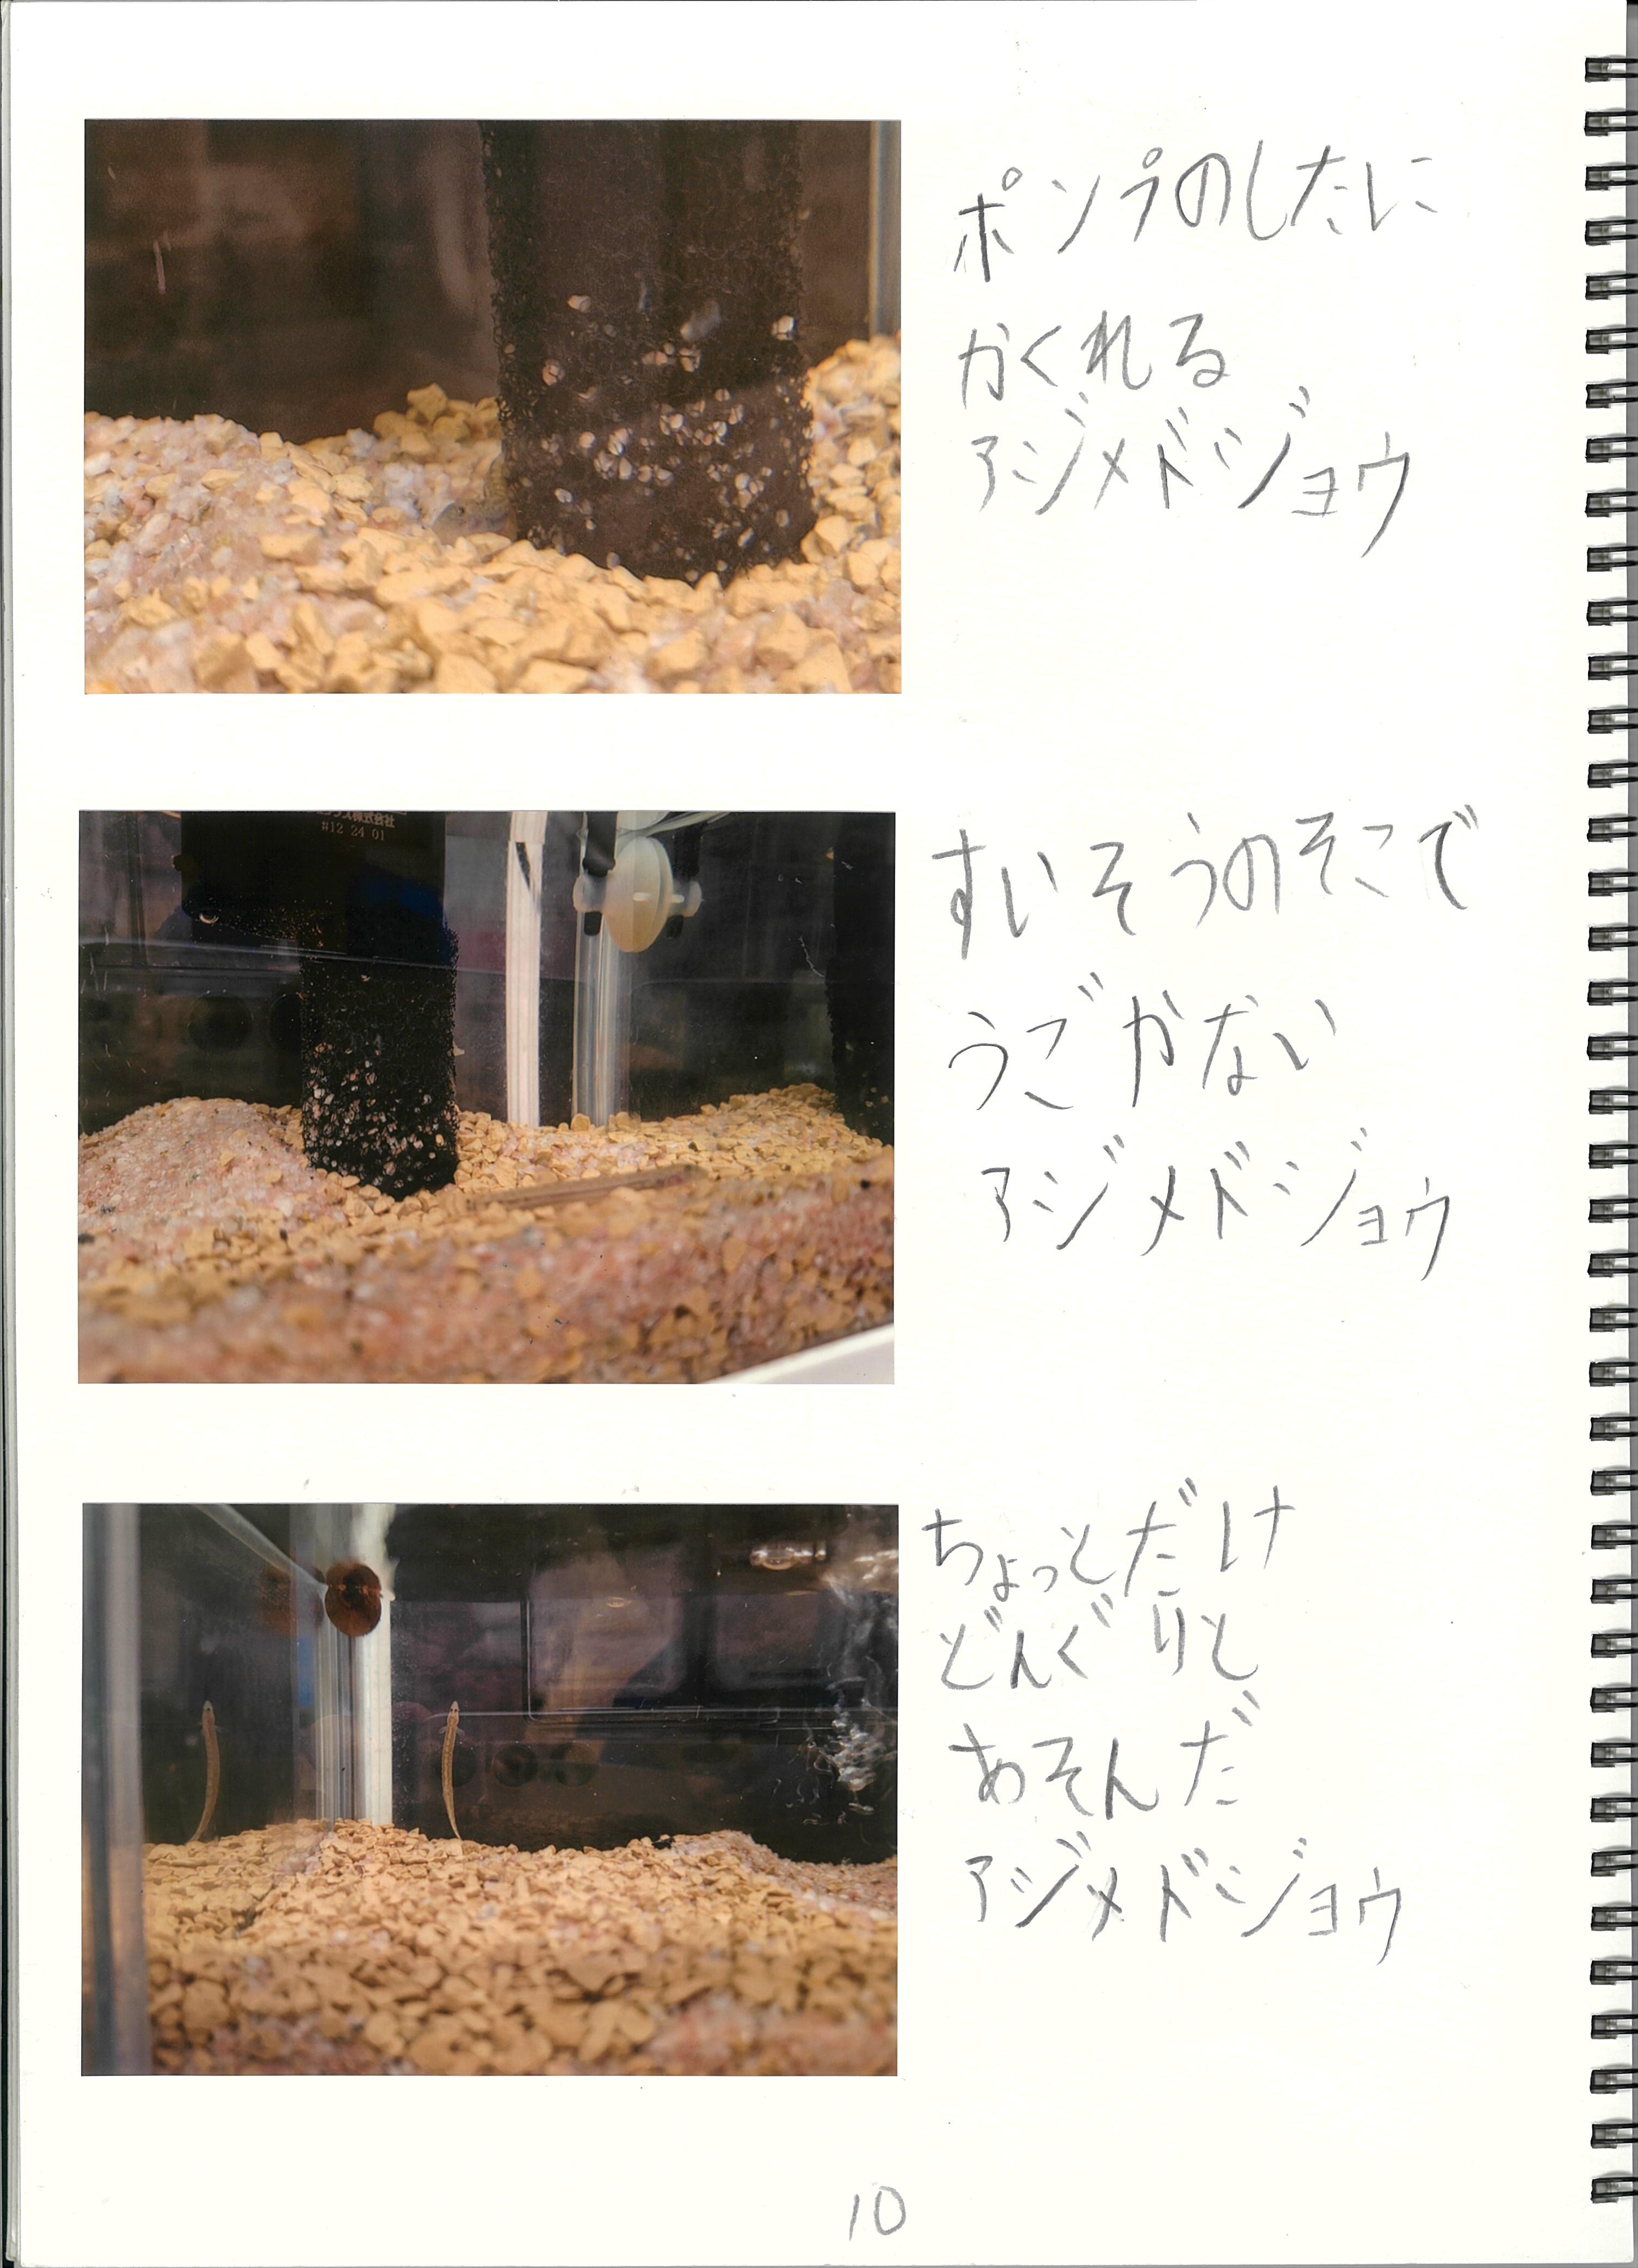 ポンプのしたに
かくれる
アジメドジョウ
株式会社
#12 24 01
すいそうのそこで
うごかない
アジメドジョウ
ちょっとだけ
どんぐりと
あそんだ
アジメドジョウ
10